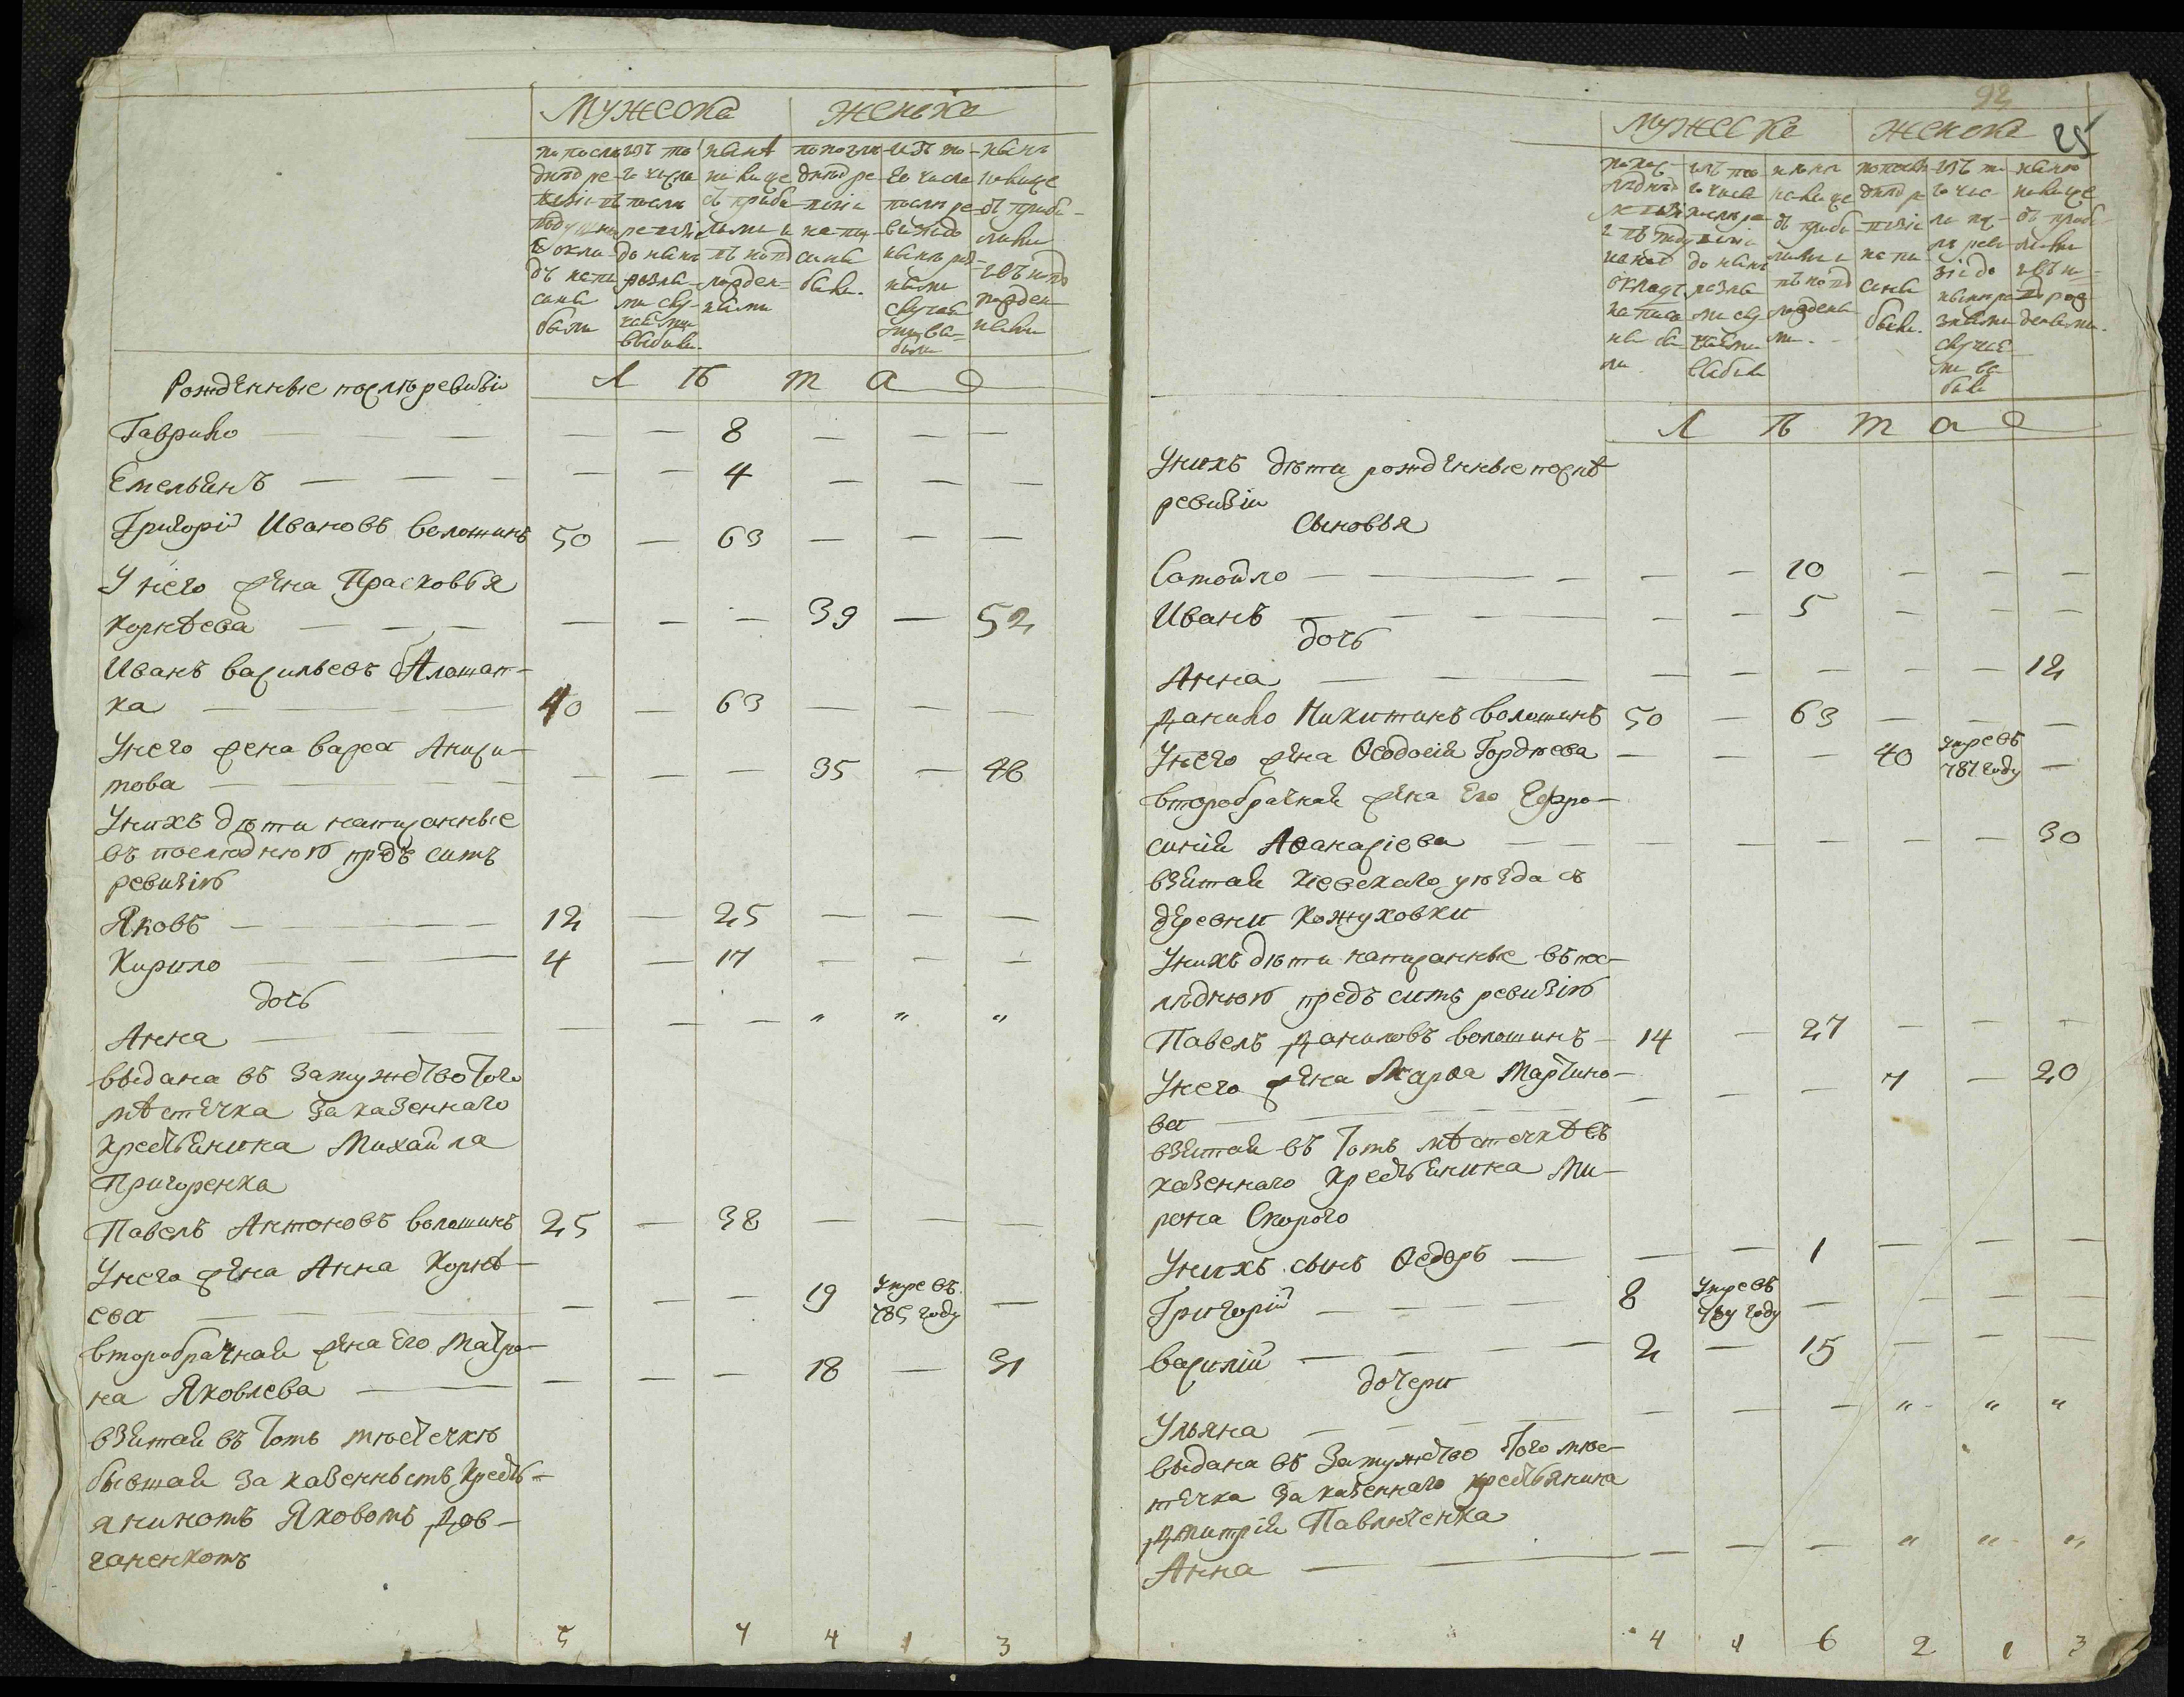 Мужеска
Женска
по послѣдней ревизіи въ подушной окладъ написаны были
изъ того числа послѣ ревизіи до нынѣ разными случаями выбыли
нынѣ на лице съ прибылыми и въ новорожденными
по послѣдней ревизіи написаны были
изъ того числа послѣ ревизіи до нынѣ разными случаями выбыли
нынѣ на лице съ прибылыми и въ новорожденными
Лѣта
Рожденные послѣ ревизіи
Гаврило — — — — — 8 — — —
Емельянъ — — — — — 4 — — —
Григорій Ивановъ волошинъ 50 — 63 — — —
У него жена Прасковья
Корнѣева — — — — — — 39 — 52
Иванъ васильевъ
ка — — — 40 — 63 — — —
У него жена варва
това — — — — 35 — 48
У нихъ дѣти написанные
въ последнюю предъ симъ
ревизію
Яковъ — — — 12 — 25 — — —
Кирило — — — 4 — 17 — — —
дочь
Анна — — — — — " " "
выдана въ замужество того
мѣстечка за казеннаго
крестьянина Михайла
Григоренка
Павелъ Антоновъ волошинъ 25 — 38 — — —
У него жена Анна Корнѣ-
ева — — — — 19 умре въ 785 году —
второбрачная жена его Матро-
на Яковлева — — — — 18 — 31
взятая въ томъ мѣстечкѣ
бывшая за казеннымъ кресть-
яниномъ Яковомъ Дов-
ганенкомъ
5 7 4 1 3
92
25
Мужеска
Женска
по послѣдней ревизіи въ подушной окладъ написаны были
изъ того числа послѣ ревизіи до нынѣ разными случаями выбыли
нынѣ на лице съ прибылыми и въ новорожденными
по послѣдней ревизіи написаны были
изъ того числа послѣ ревизіи до нынѣ разными случаями выбыли
нынѣ на лице съ прибылыми и въ новорожденными
Лѣта
У нихъ дѣти рожденные послѣ
ревизіи
Сыновья
Самойло — — — — — 10 — — —
Иванъ — — — — — 5 — — —
дочь
Анна — — — — — — — 12
Данило Никитинъ волошинъ 50 — 63 — — —
У него жена Ѳеодосія Гордѣева — — — 40 умре въ 787 году —
второбрачная жена его Ефро-
синія Аѳанасіева — — — — — — 30
взятая Кіевскаго уѣзда съ
деревни Кожуховки
У нихъ дѣти написанные въ пос-
лѣднюю предъ симъ ревизію
Павелъ Даниловъ волошинъ — 14 — 27 — — —
У него жена Марѳа Мартино-
ва — — — — 7 — 20
взятая въ томъ мѣстечкѣ съ
казеннаго крестьянина Ми-
рона Скорого
У нихъ сынъ Ѳедоръ — — — 1 — — —
Григорій — — — 8 умре въ году — — — —
василій — — — 2 — 15 — — —
дочери
Ульяна — — — — — — " " "
выдана въ замужество того мѣс-
течка за казеннаго крестьянина
Дмитрія Павлюченка
Анна — — — — — " " "
4 1 6 2 1 3